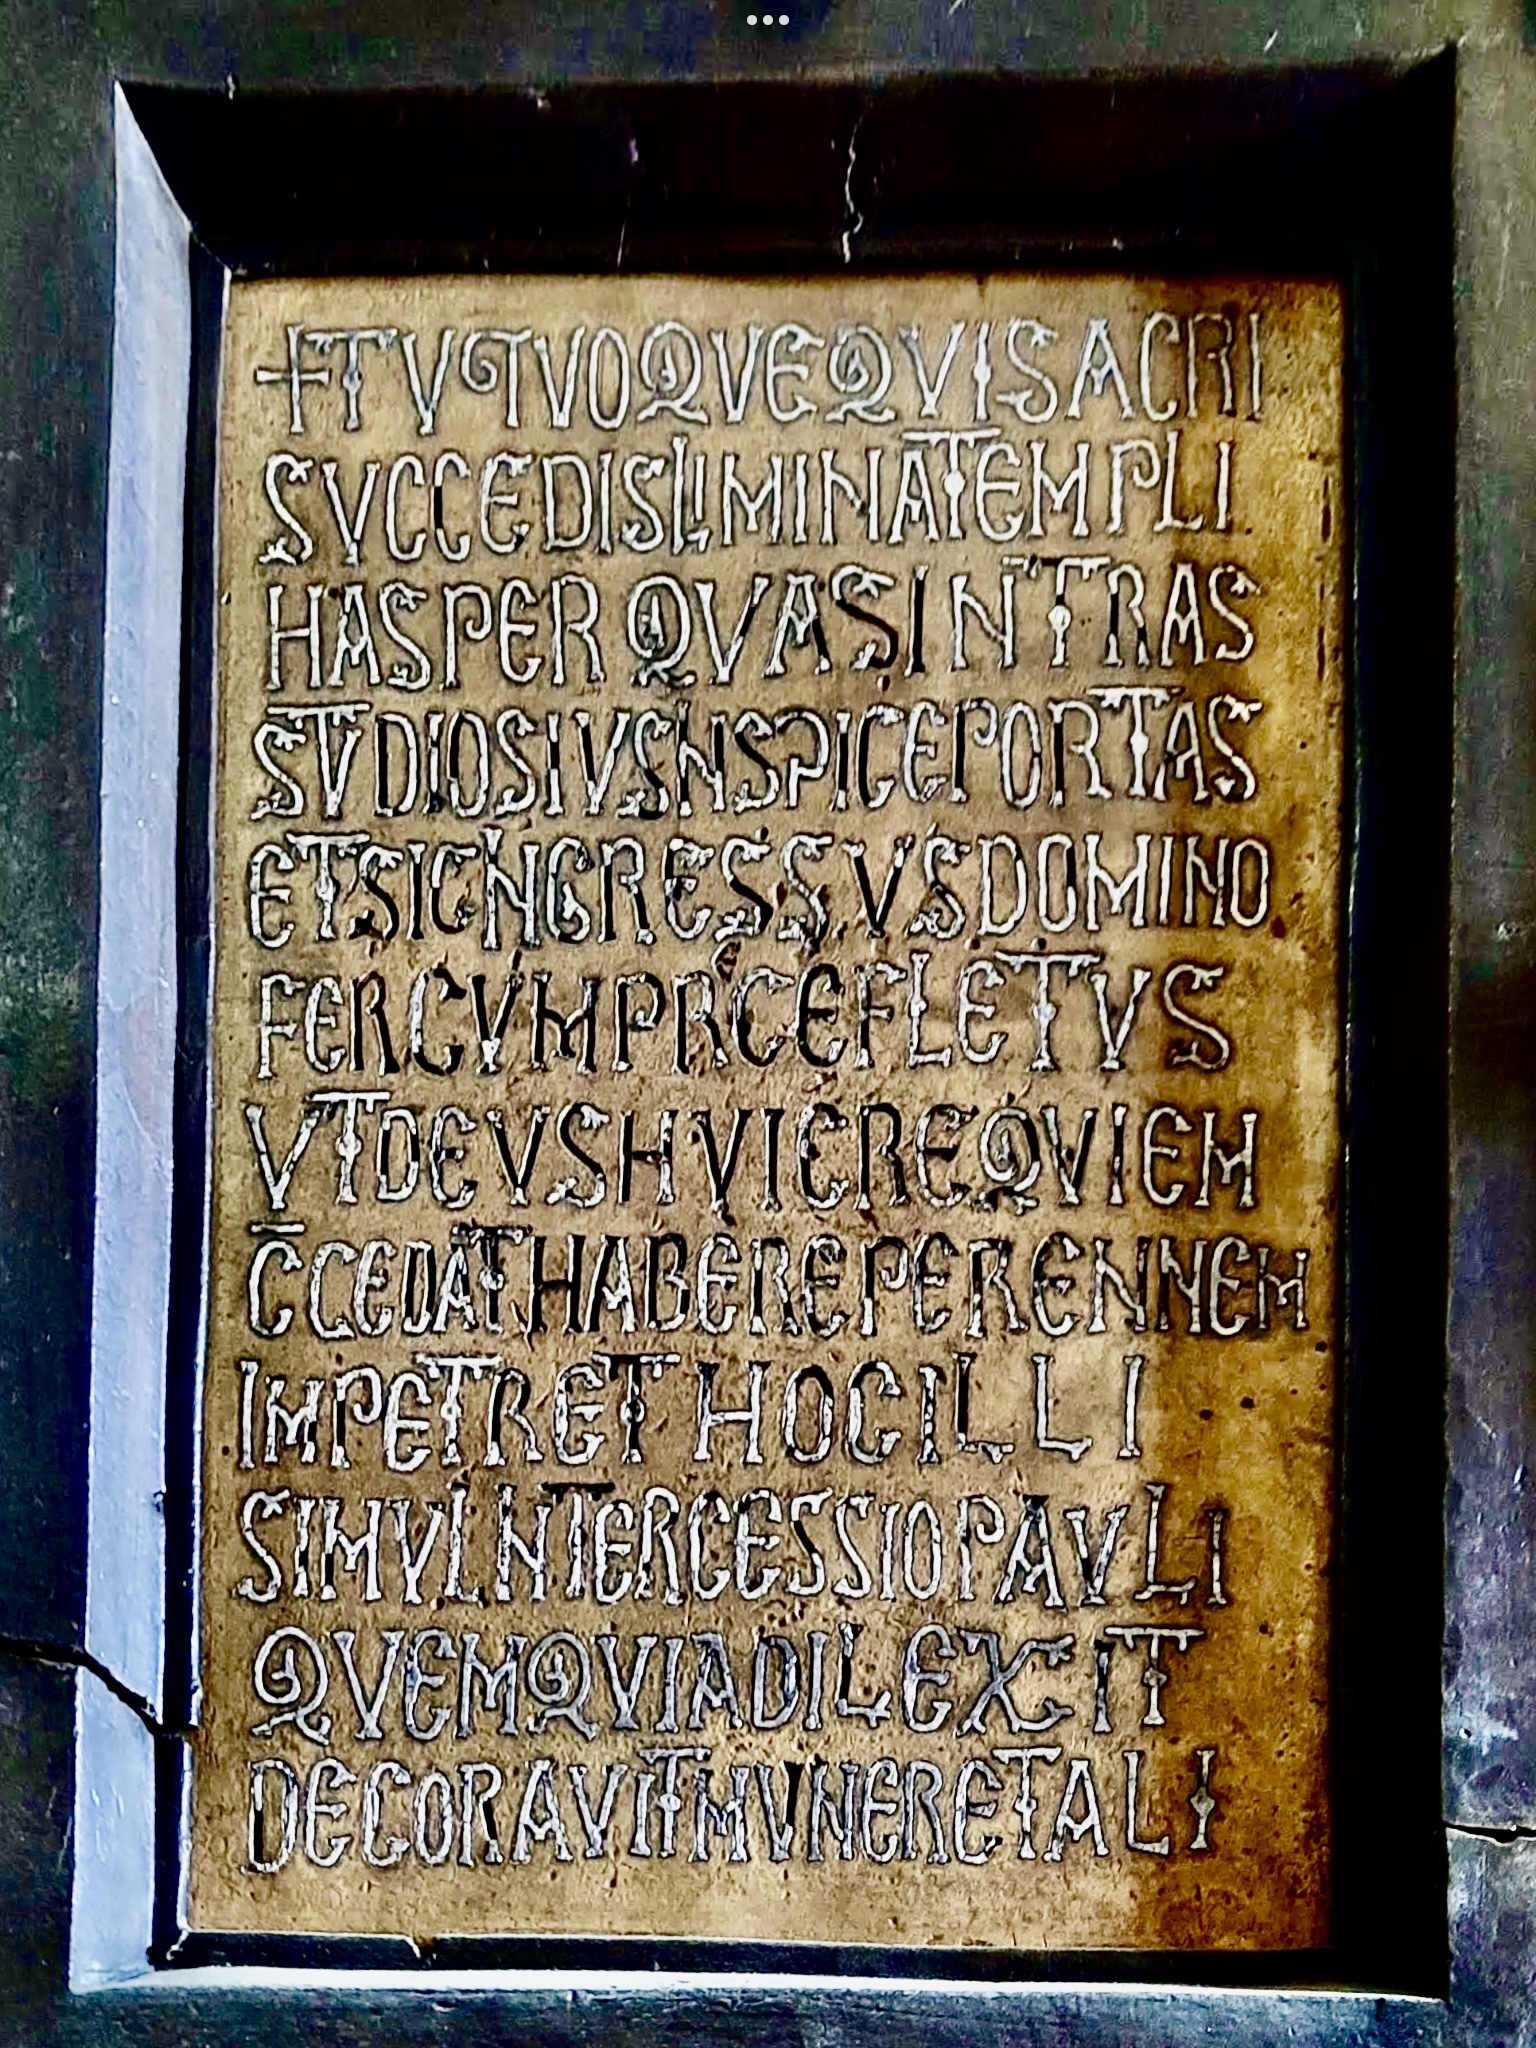 +TV TVOQVE QVI SACRI
SVCCEDIS LIMINA TEMPLI
HAS PER QVAS INTRAS
STVDIOSIVS INSPICE PORTAS
ET SIC INGRESSVS DOMINO
FER CVM PRECE FLETVS
VT DEVS HVIC REQVIEM
C̄CEDAT HABERE PERENNEM
IMPETRET HOC ILLI
SIMVL INTERCESSIO PAVLI
QVEM QVIA DILEXIT
DECORAVIT MVNERE TALI